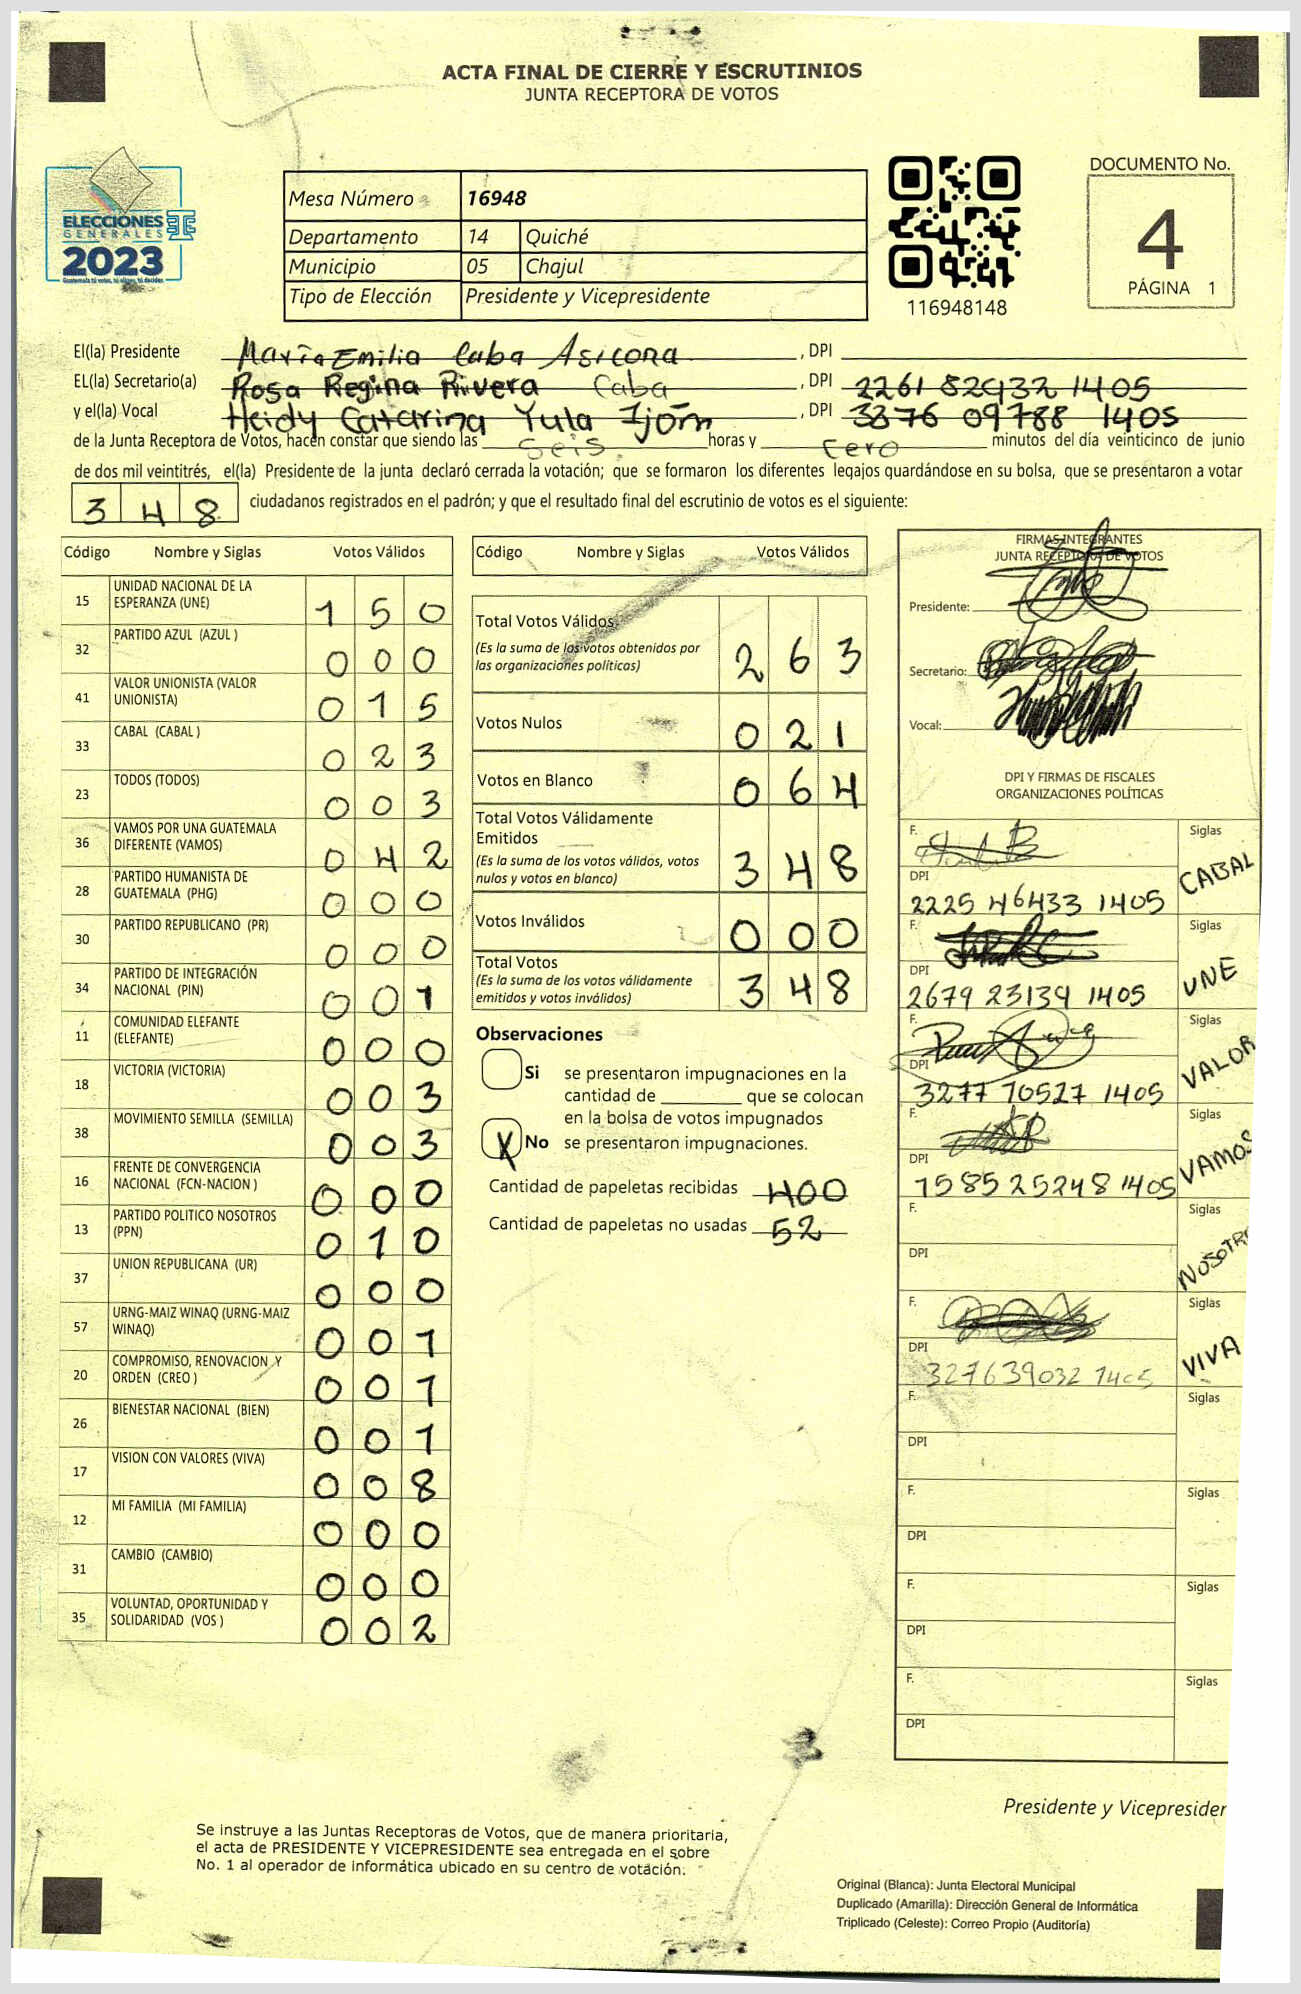 ACTA FINAL DE CIERRE Y ESCRUTINIOS
JUNTA RECEPTORA DE VOTOS
ELECCIONES
GENERALES
2023
Mesa Número 16948
Departamento 14 Quiché
Municipio 05 Chajul
Tipo de Elección Presidente y Vicepresidente
116948148
DOCUMENTO No.
4
PÁGINA 1
El(la) Presidente María Emilia Caba Asicona , DPI
EL(la) Secretario(a) Rosa Regina Rivera Caba , DPI 2261 82932 1405
y el(la) Vocal Heidy Catarina Yula Ijóm , DPI 3376 09788 1405
de la Junta Receptora de Votos, hacen constar que siendo las Seis horas y Cero minutos del día veinticinco de junio
de dos mil veintitrés, el(la) Presidente de la junta declaró cerrada la votación; que se formaron los diferentes legajos quardándose en su bolsa, que se presentaron a votar
348 ciudadanos registrados en el padrón; y que el resultado final del escrutinio de votos es el siguiente:
Código Nombre y Siglas Votos Válidos
15 UNIDAD NACIONAL DE LA ESPERANZA (UNE) 150
32 PARTIDO AZUL (AZUL ) 000
41 VALOR UNIONISTA (VALOR UNIONISTA) 015
33 CABAL (CABAL ) 023
23 TODOS (TODOS) 003
36 VAMOS POR UNA GUATEMALA DIFERENTE (VAMOS) 042
28 PARTIDO HUMANISTA DE GUATEMALA (PHG) 000
30 PARTIDO REPUBLICANO (PR) 000
34 PARTIDO DE INTEGRACIÓN NACIONAL (PIN) 001
11 COMUNIDAD ELEFANTE (ELEFANTE) 000
18 VICTORIA (VICTORIA) 003
38 MOVIMIENTO SEMILLA (SEMILLA) 003
16 FRENTE DE CONVERGENCIA NACIONAL (FCN-NACION ) 000
13 PARTIDO POLITICO NOSOTROS (PPN) 010
37 UNION REPUBLICANA (UR) 000
57 URNG-MAIZ WINAQ (URNG-MAIZ WINAQ) 001
20 COMPROMISO, RENOVACION Y ORDEN (CREO ) 001
26 BIENESTAR NACIONAL (BIEN) 001
17 VISION CON VALORES (VIVA) 008
12 MI FAMILIA (MI FAMILIA) 000
31 CAMBIO (CAMBIO) 000
35 VOLUNTAD, OPORTUNIDAD Y SOLIDARIDAD (VOS ) 002
Código Nombre y Siglas Votos Válidos
Total Votos Válidos 263
(Es la suma de los votos obtenidos por
las organizaciones políticas)
Votos Nulos 021
Votos en Blanco 064
Total Votos Válidamente
Emitidos 348
(Es la suma de los votos válidos, votos
nulos y votos en blanco)
Votos Inválidos 000
Total Votos 348
(Es la suma de los votos válidamente
emitidos y votos inválidos)
Observaciones
Si se presentaron impugnaciones en la
cantidad de que se colocan
en la bolsa de votos impugnados
X No se presentaron impugnaciones.
Cantidad de papeletas recibidas 400
Cantidad de papeletas no usadas 52
FIRMAS INTEGRANTES
JUNTA RECEPTORA DE VOTOS
Presidente:
Secretario:
Vocal:
DPI Y FIRMAS DE FISCALES
ORGANIZACIONES POLÍTICAS
F. Siglas CABAL
DPI 2225 46433 1405
F. Siglas UNE
DPI 2679 23139 1405
F. Siglas VALOR
DPI 3277 70527 1405
F. Siglas VAMOS
DPI 1585 25248 1405
F. Siglas NOSOTRO
DPI
F. Siglas VIVA
DPI 327639032 1405
F. Siglas
DPI
F. Siglas
DPI
F. Siglas
DPI
F. Siglas
DPI
Presidente y Vicepresiden
Se instruye a las Juntas Receptoras de Votos, que de manera prioritaria,
el acta de PRESIDENTE Y VICEPRESIDENTE sea entregada en el sobre
No. 1 al operador de informática ubicado en su centro de votación.
Original (Blanca): Junta Electoral Municipal
Duplicado (Amarilla): Dirección General de Informática
Triplicado (Celeste): Correo Propio (Auditoría)